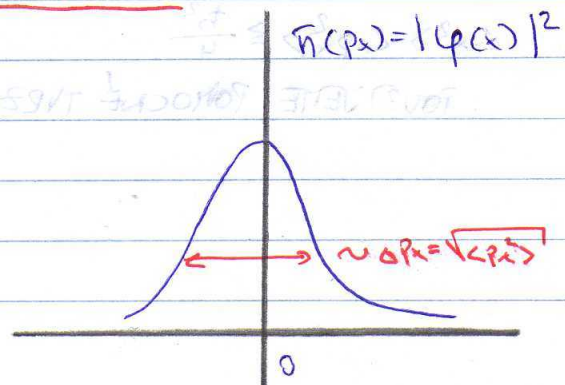 π(px)=|φ(x)|²
~ Δpx=√<px²>
0